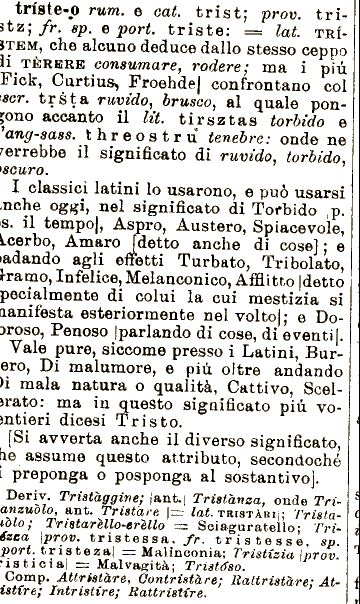 tríste-o rum. e cat. trist; prov. tri-
stz; fr. sp. e port. triste: = lat. TRÍ-
STEM, che alcuno deduce dallo stesso ceppo
di TÈRERE consumare, rodere; ma i più
Fick, Curtius, Froehde] confrontano col
scr. tṛšta ruvido, brusco, al quale pon-
gono accanto il lit. tirsztas torbido e
l'ang-sass. threostru tenebre: onde ne
verrebbe il significato di ruvido, torbido,
oscuro.
I classici latini lo usarono, e può usarsi
anche oggi, nel significato di Torbido [p.
es. il tempo], Aspro, Austero, Spiacevole,
Acerbo, Amaro [detto anche di cose]; e
badando agli effetti Turbato, Tribolato,
Gramo, Infelice, Melanconico, Afflitto [detto
specialmente di colui la cui mestizia si
manifesta esteriormente nel volto]; e Do-
loroso, Penoso [parlando di cose, di eventi].
Vale pure, siccome presso i Latini, Bur-
bero, Di malumore, e più oltre andando
Di mala natura o qualità, Cattivo, Scel-
lerato: ma in questo significato più vo-
lentieri dicesi Tristo.
[Si avverta anche il diverso significato,
che assume questo attributo, secondochè
si preponga o posponga al sostantivo].
Deriv. Tristàggine; [ant.] Tristànza, onde Tri-
stanzuòlo, ant. Tristàre [= lat. TRISTÀRI]; Trista-
nuòlo; Tristarèllo-erèllo = Sciaguratello; Tri-
stézza [prov. tristessa, fr. tristesse, sp.
e port. tristeza] = Malinconia; Tristízia [prov.
tristicia] = Malvagità; Tristóso.
Comp. Attristàre, Contristàre; Rattristàre; At-
tristíre; Intristíre; Rattristíre.